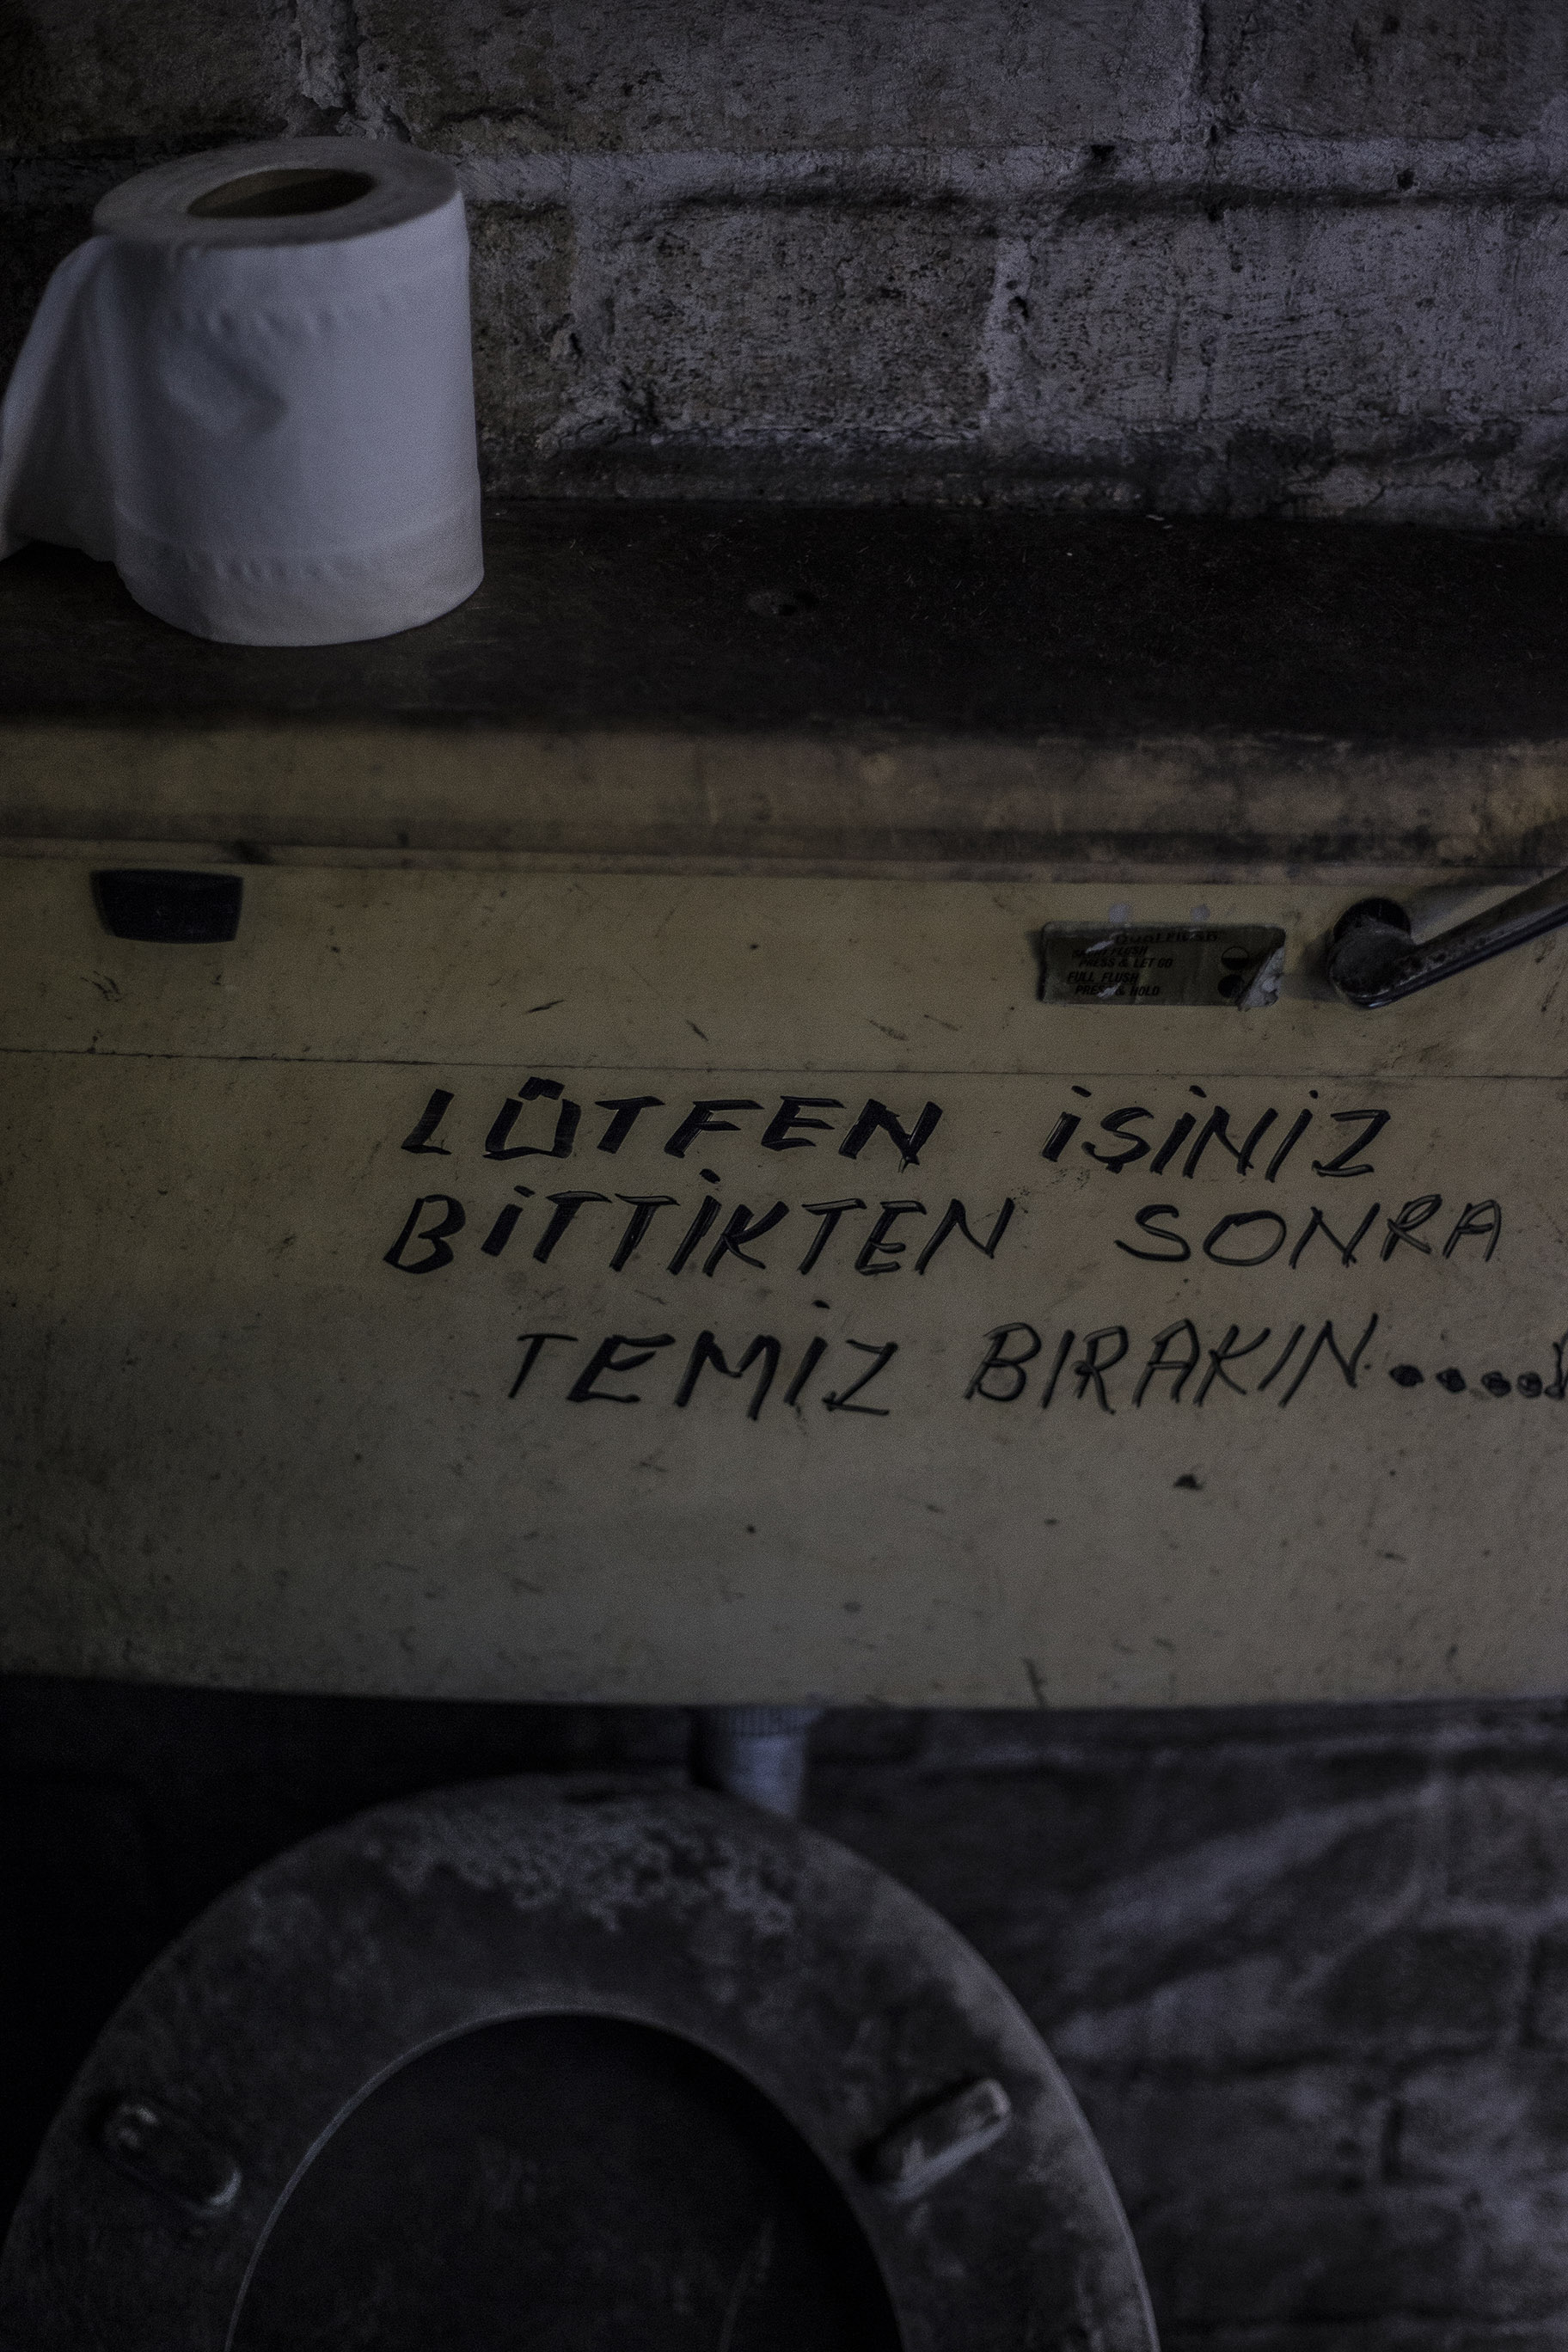 DUAL FLUSH
FLUSH
PRESS & LET GO
FULL FLUSH
PRESS & HOLD
LÜTFEN İŞİNİZ
BİTTİKTEN SONRA
TEMİZ BIRAKIN.....!